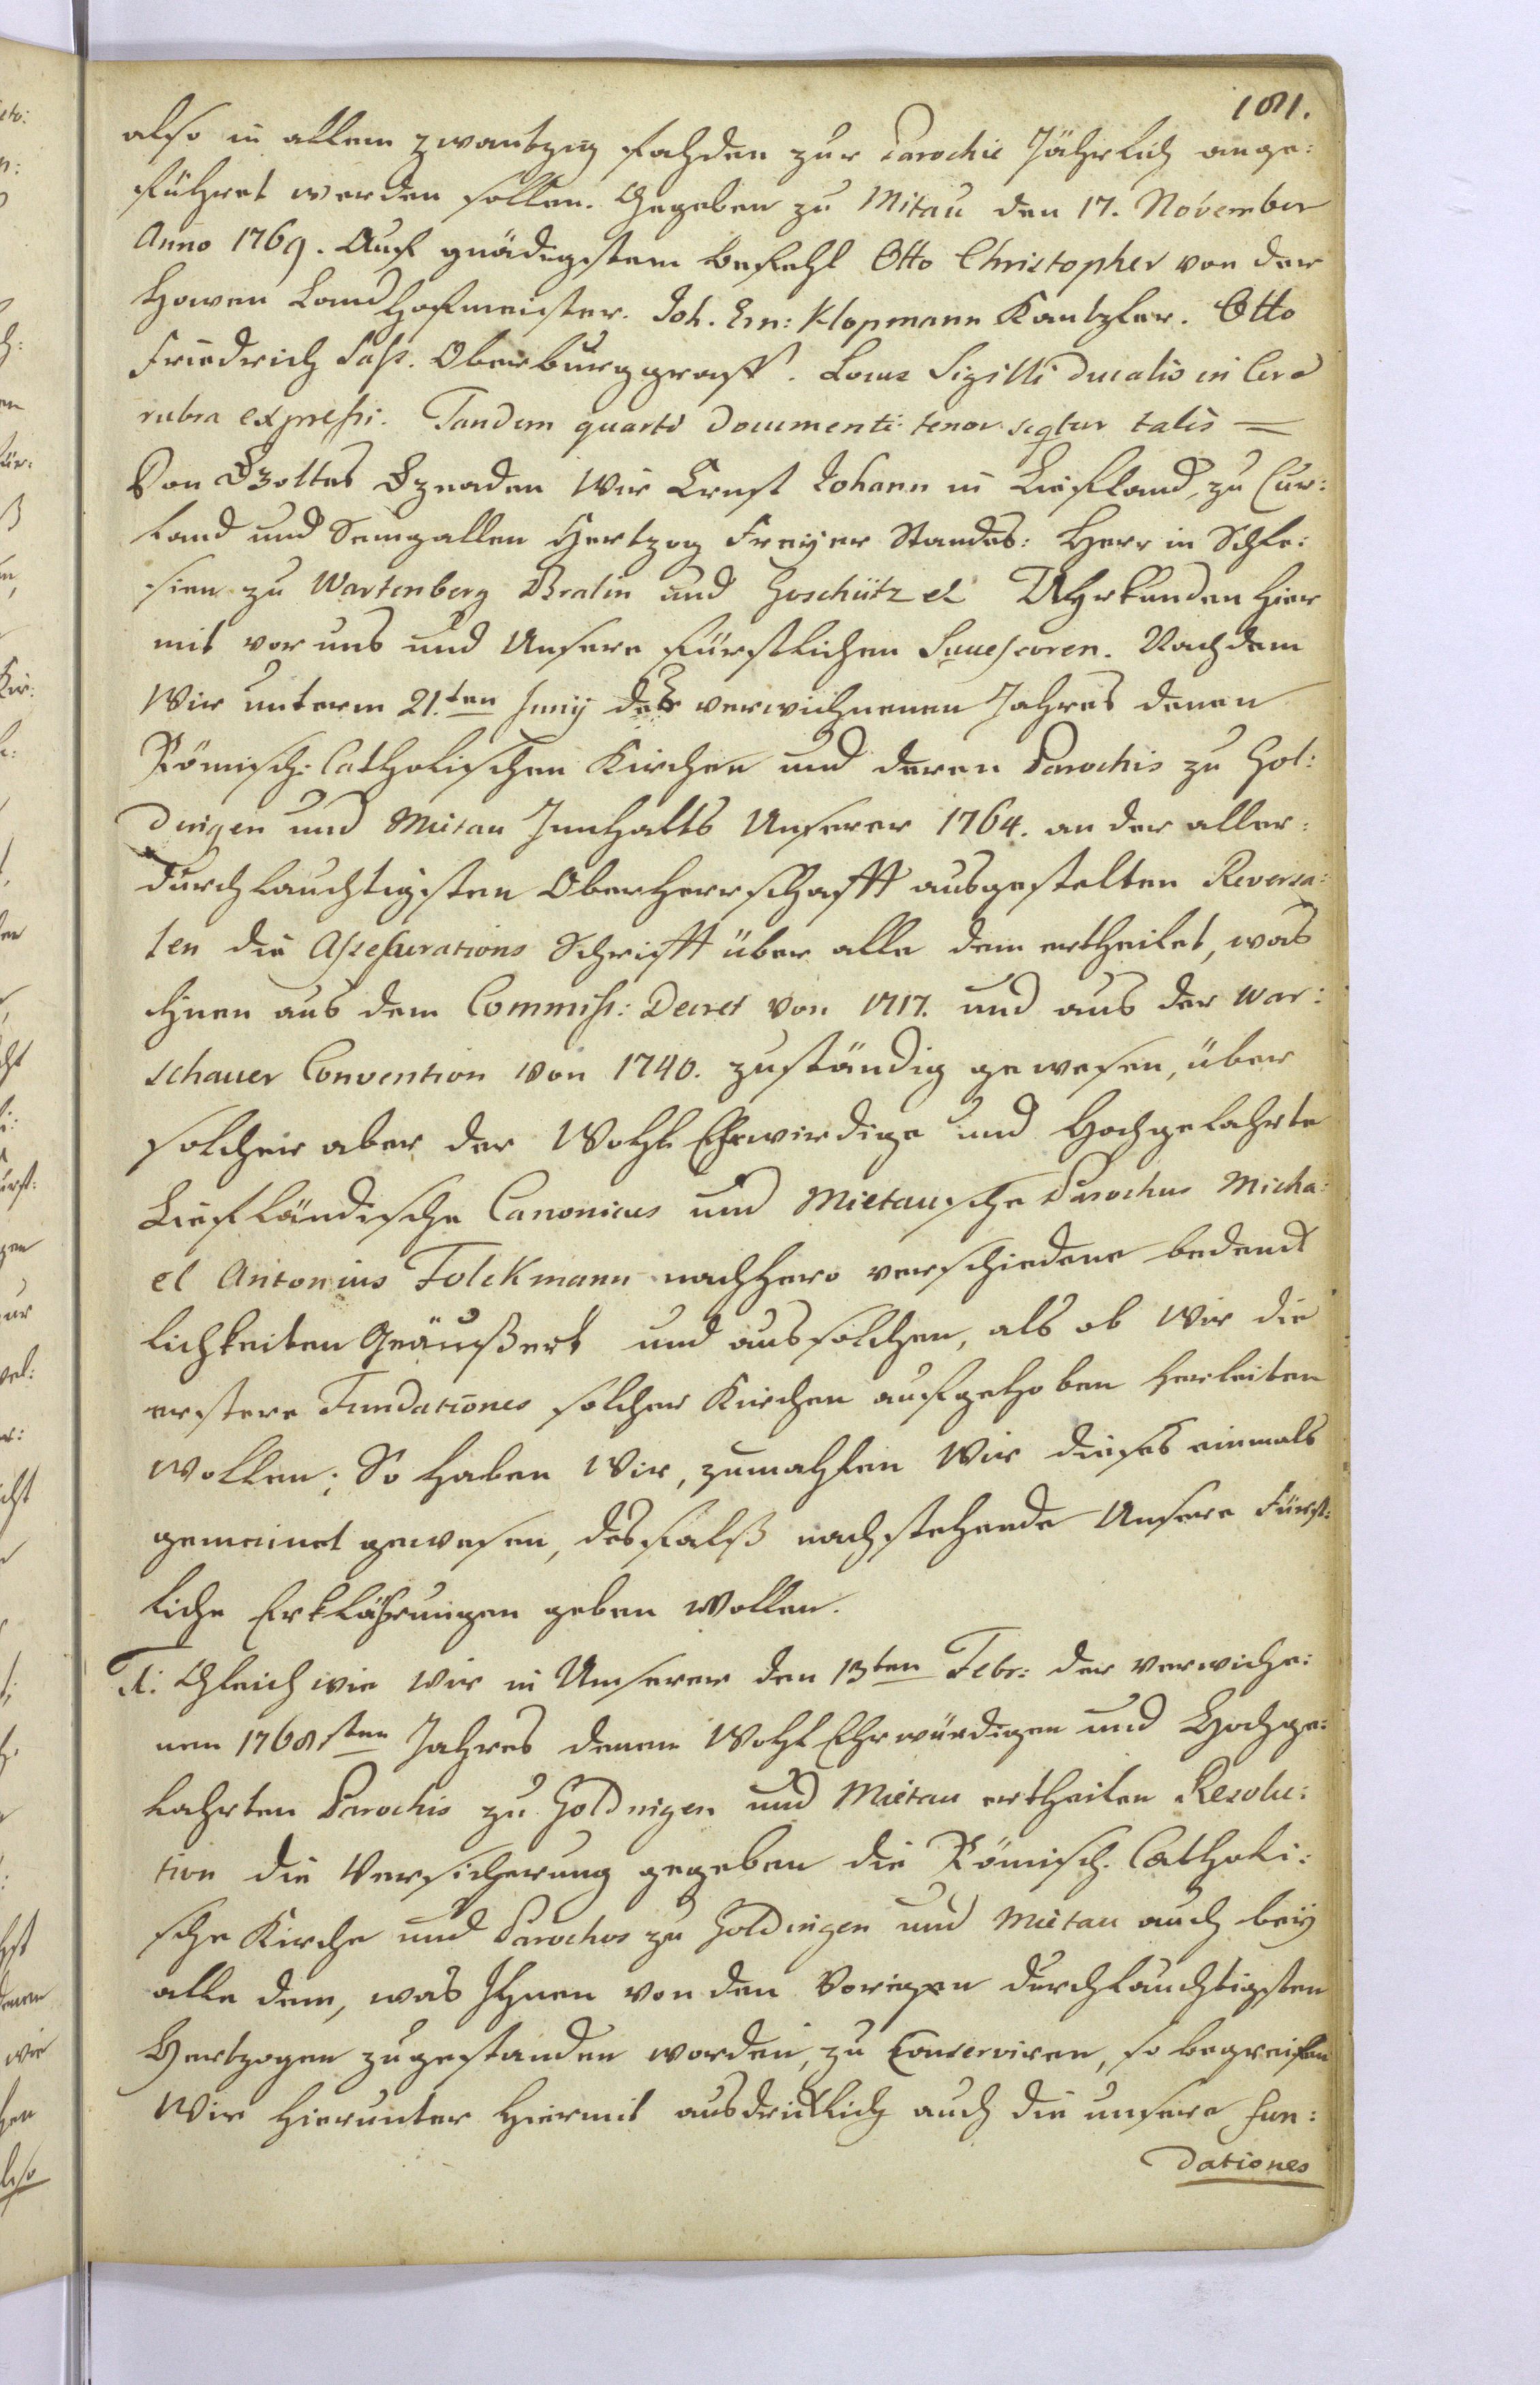 181.
also in allem zwantzig Fahden zur Parochie Jährlich ange:
führet werden sollen. Gegeben zu Mitau den 17. November
Anno 1769. Auf gnädigstem Befehl Otto Christopher von der
Howen Land Hofmeister. Joh. Ern: Klopmann Kantzler. Otto
Friedrich Sass. Oberburggraff. Locus Sigilli Ducalis in Cera
rubra expressi. Tandem quarti Documenti tenor seqtur talis =
Von Gottes Gnaden Wir Ernst Johann in Liefland, zu Cur:
land und Semgallen Hertzog Freyer Standes: Herr in Schle:
sien zu Wartenberg Bralin und Goschütz et Uhrkunden hier
mit vor uns und Unsere Fürstlichen Successoren. Nachdem
Wir unterm 21.ten Juny des verwichnenen Jahres denen
Römisch: Catholischen Kirchen und deren Parochis zu Gol:
dingen und Mietau Innhalts Unserer 1764. an der aller:
durchlauchtigsten Oberherrschafft ausgestelten Reversa:
len die Assecurations Schrifft über alle dem ertheilet, was
ihnen aus dem Commiss: Decret von 1717. und aus der War:
schauer Convention von 1740. zuständig gewesen, über
solcher aber der WohlEhrwirdige und Hochgelahrte
Liefländische Canonicus und Mietausche Parochus Micha:
el Antonius Folckmann nachhero verschiedene bedenck
lichkeiten Geäußert und aus solchen, als ob Wir die
erstere Fundationes solcher Kirchen aufgehoben herleiten
wollen; So haben Wir, zumahlen Wir dieses niemals
gemeinet gewesen, desfalß nachstehende Unsere Fürst:
liche Erklährungen geben wollen.
1: Gleich wie Wir in Unserer den 13ten Febr: der verwiche:
nen 1768sten Jahres denen WohlEhrwürdigen und Hochge:
lahrten Parochis zu Goldingen und Mietau ertheilten Resolu:
tion die Versicherung gegeben die Römisch. Catholi:
sche Kirche und Parochos zu Goldingen und Mietau auch bey
alle dem, was Ihnen von den Vorigen durchlauchtigsten
Hertzogen zugestanden worden, zu Conserviren, so begreifen
Wir hierunter hiermit ausdrücklich auch die unsere Fun:
dationes